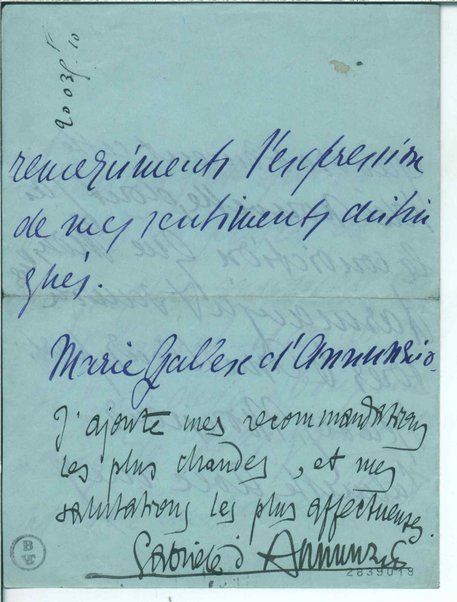 remerciments l'expression
de mes sentiments distin
gués.
Marie Gallese d'Annunzio.
J'ajoute mes recommandations
les plus chaudes, et mes
salutations les plus affectueuses.
Gabriele d'Annunzio
2839018